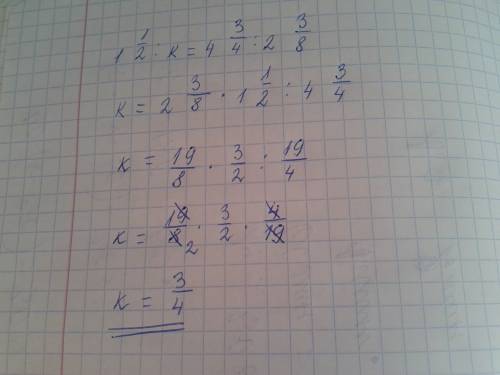 1 1/2 : к = 4 3/4 : 2 3/8
к = 2 3/8 · 1 1/2 : 4 3/4
к = 19/8 · 3/2 : 19/4
к = 19/8 2 · 3/2 · 4/19
к = 3/4